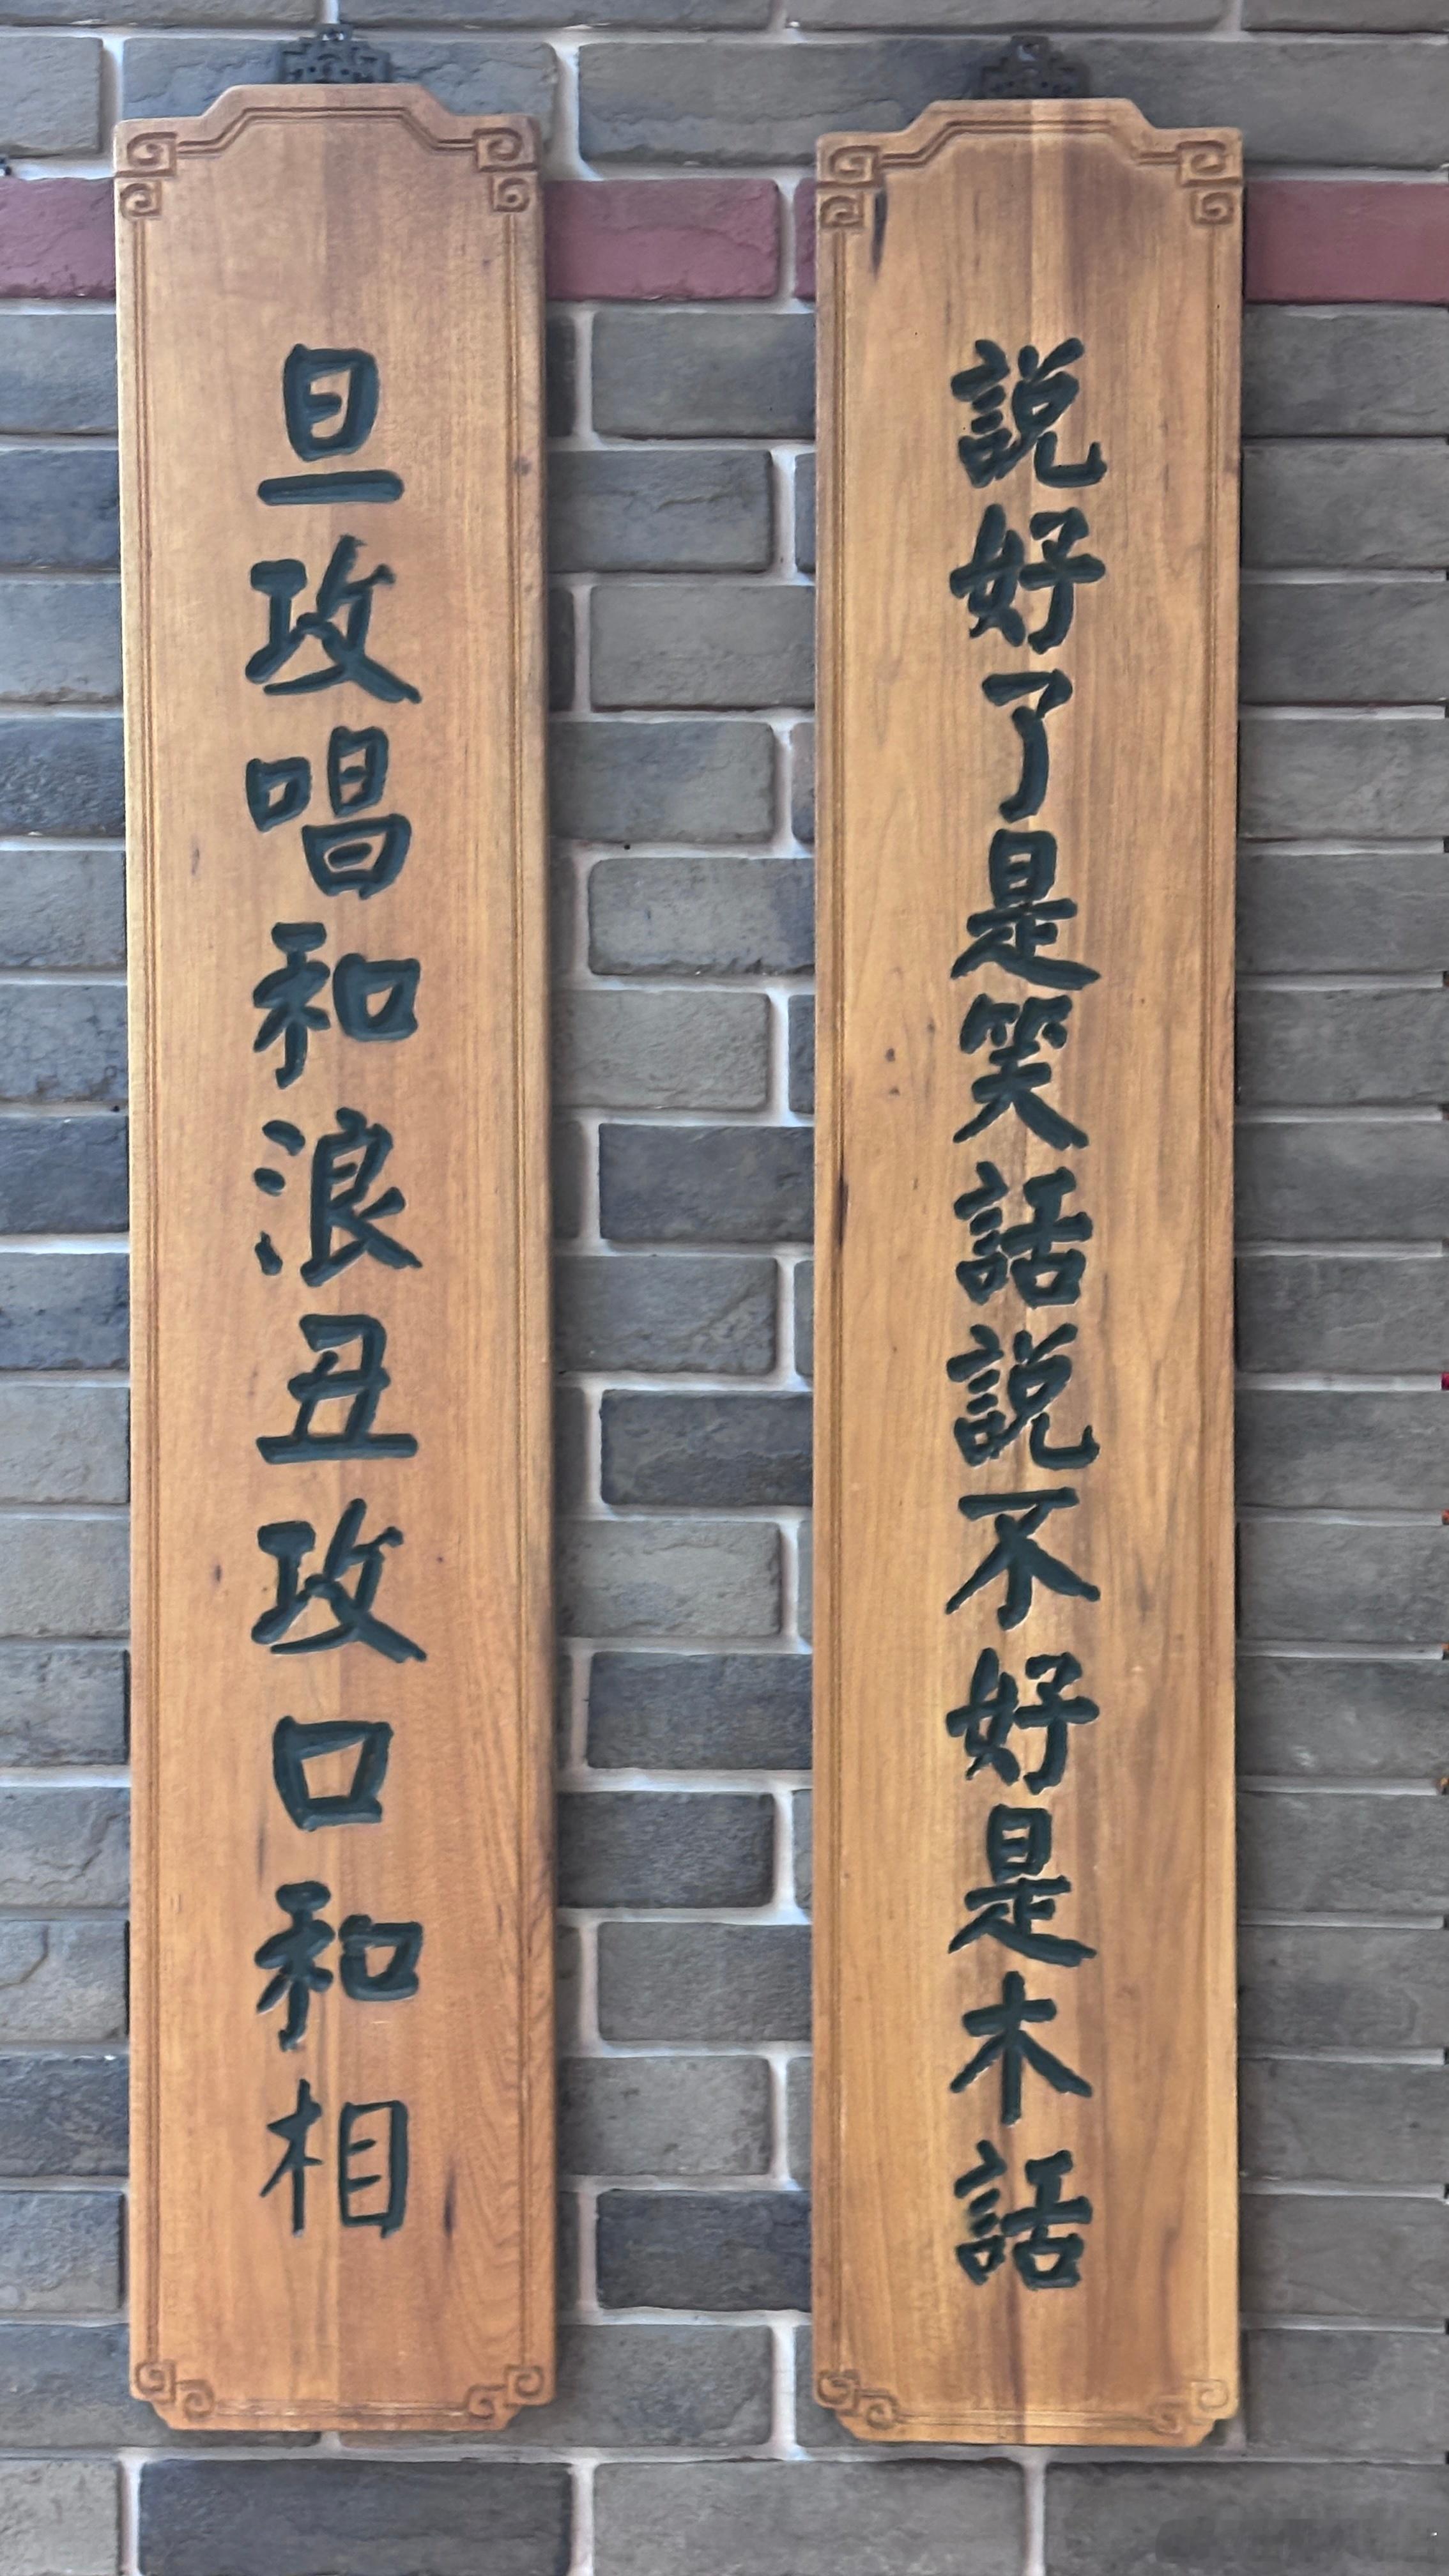 説好了是笑話説不好是木話
旦攻唱和浪丑攻口和相